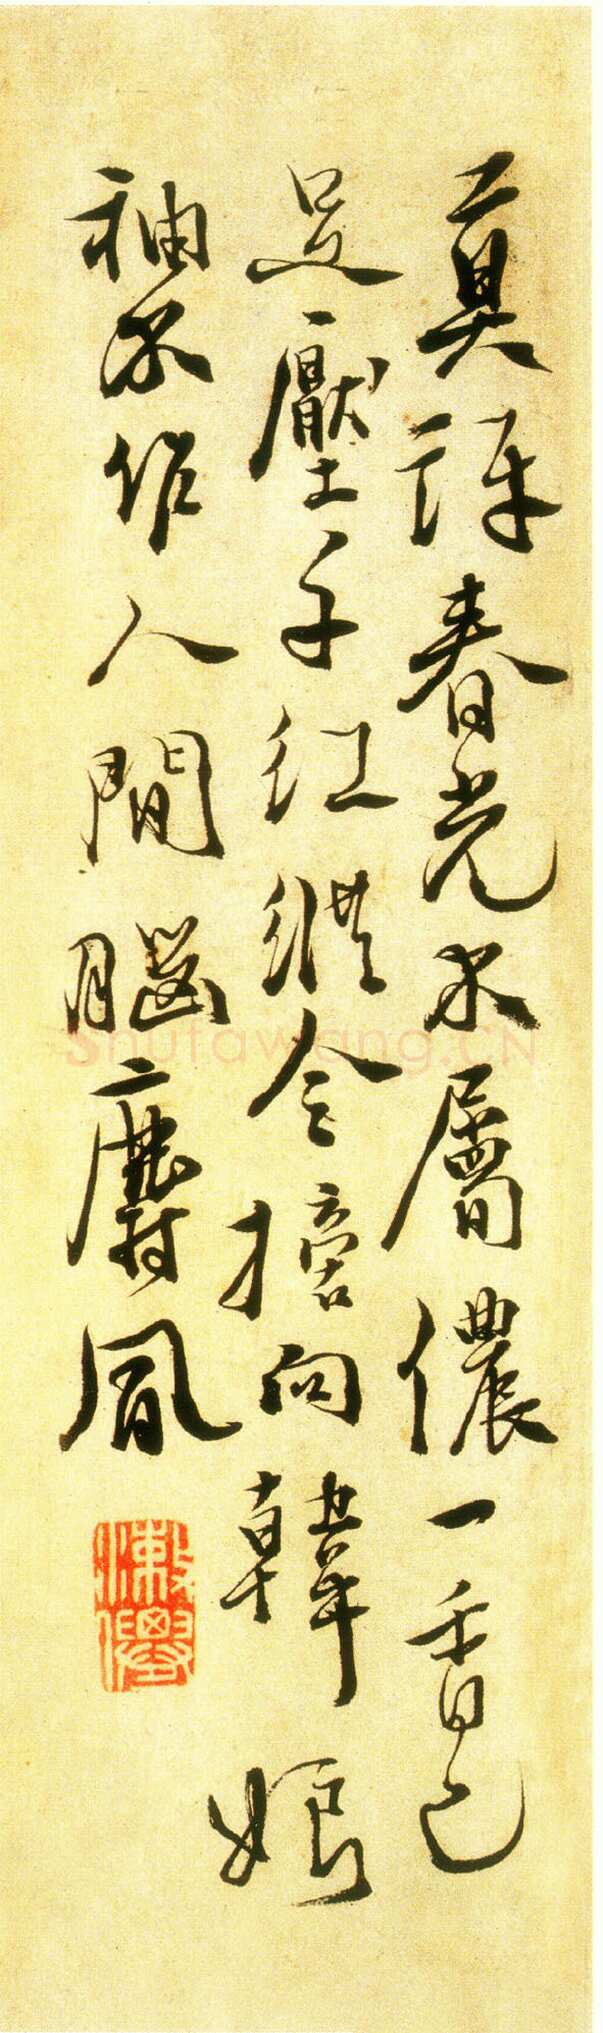 莫訝春光不屬儂一香已
足壓千紅縱令摘向韓娘
袖不作人間腦麝風
Shufawang.CN